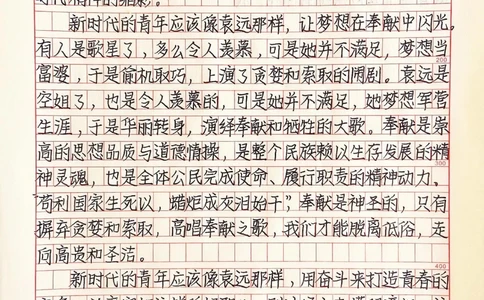 新时代的青年应该像袁远那样，让梦想在奉献中闪光。
有人是歌星了，多么令人羡慕，可是她并不满足，梦想当
200
富婆，于是偷机取巧，上演了贪婪和索取的闹剧。袁远是
空姐了，也是令人羡慕的，可是她并不满足，她梦想军营
生涯，于是华丽转身，演绎奉献和牺牲的大歌。奉献是崇
高的思想品质与道德情操，是整个民族赖以生存发展的精
300
神灵魂，也是全体公民完成使命、履行职责的精神动力。
“苟利国家生死以，蜡炬成灰泪始干”，奉献是神圣的，只有
摒弃贪婪和索取，高唱奉献之歌，我们才能脱离低俗，走
向高贵和圣洁。
400
新时代的青年应该像袁远那样，用奋斗来打造青春的